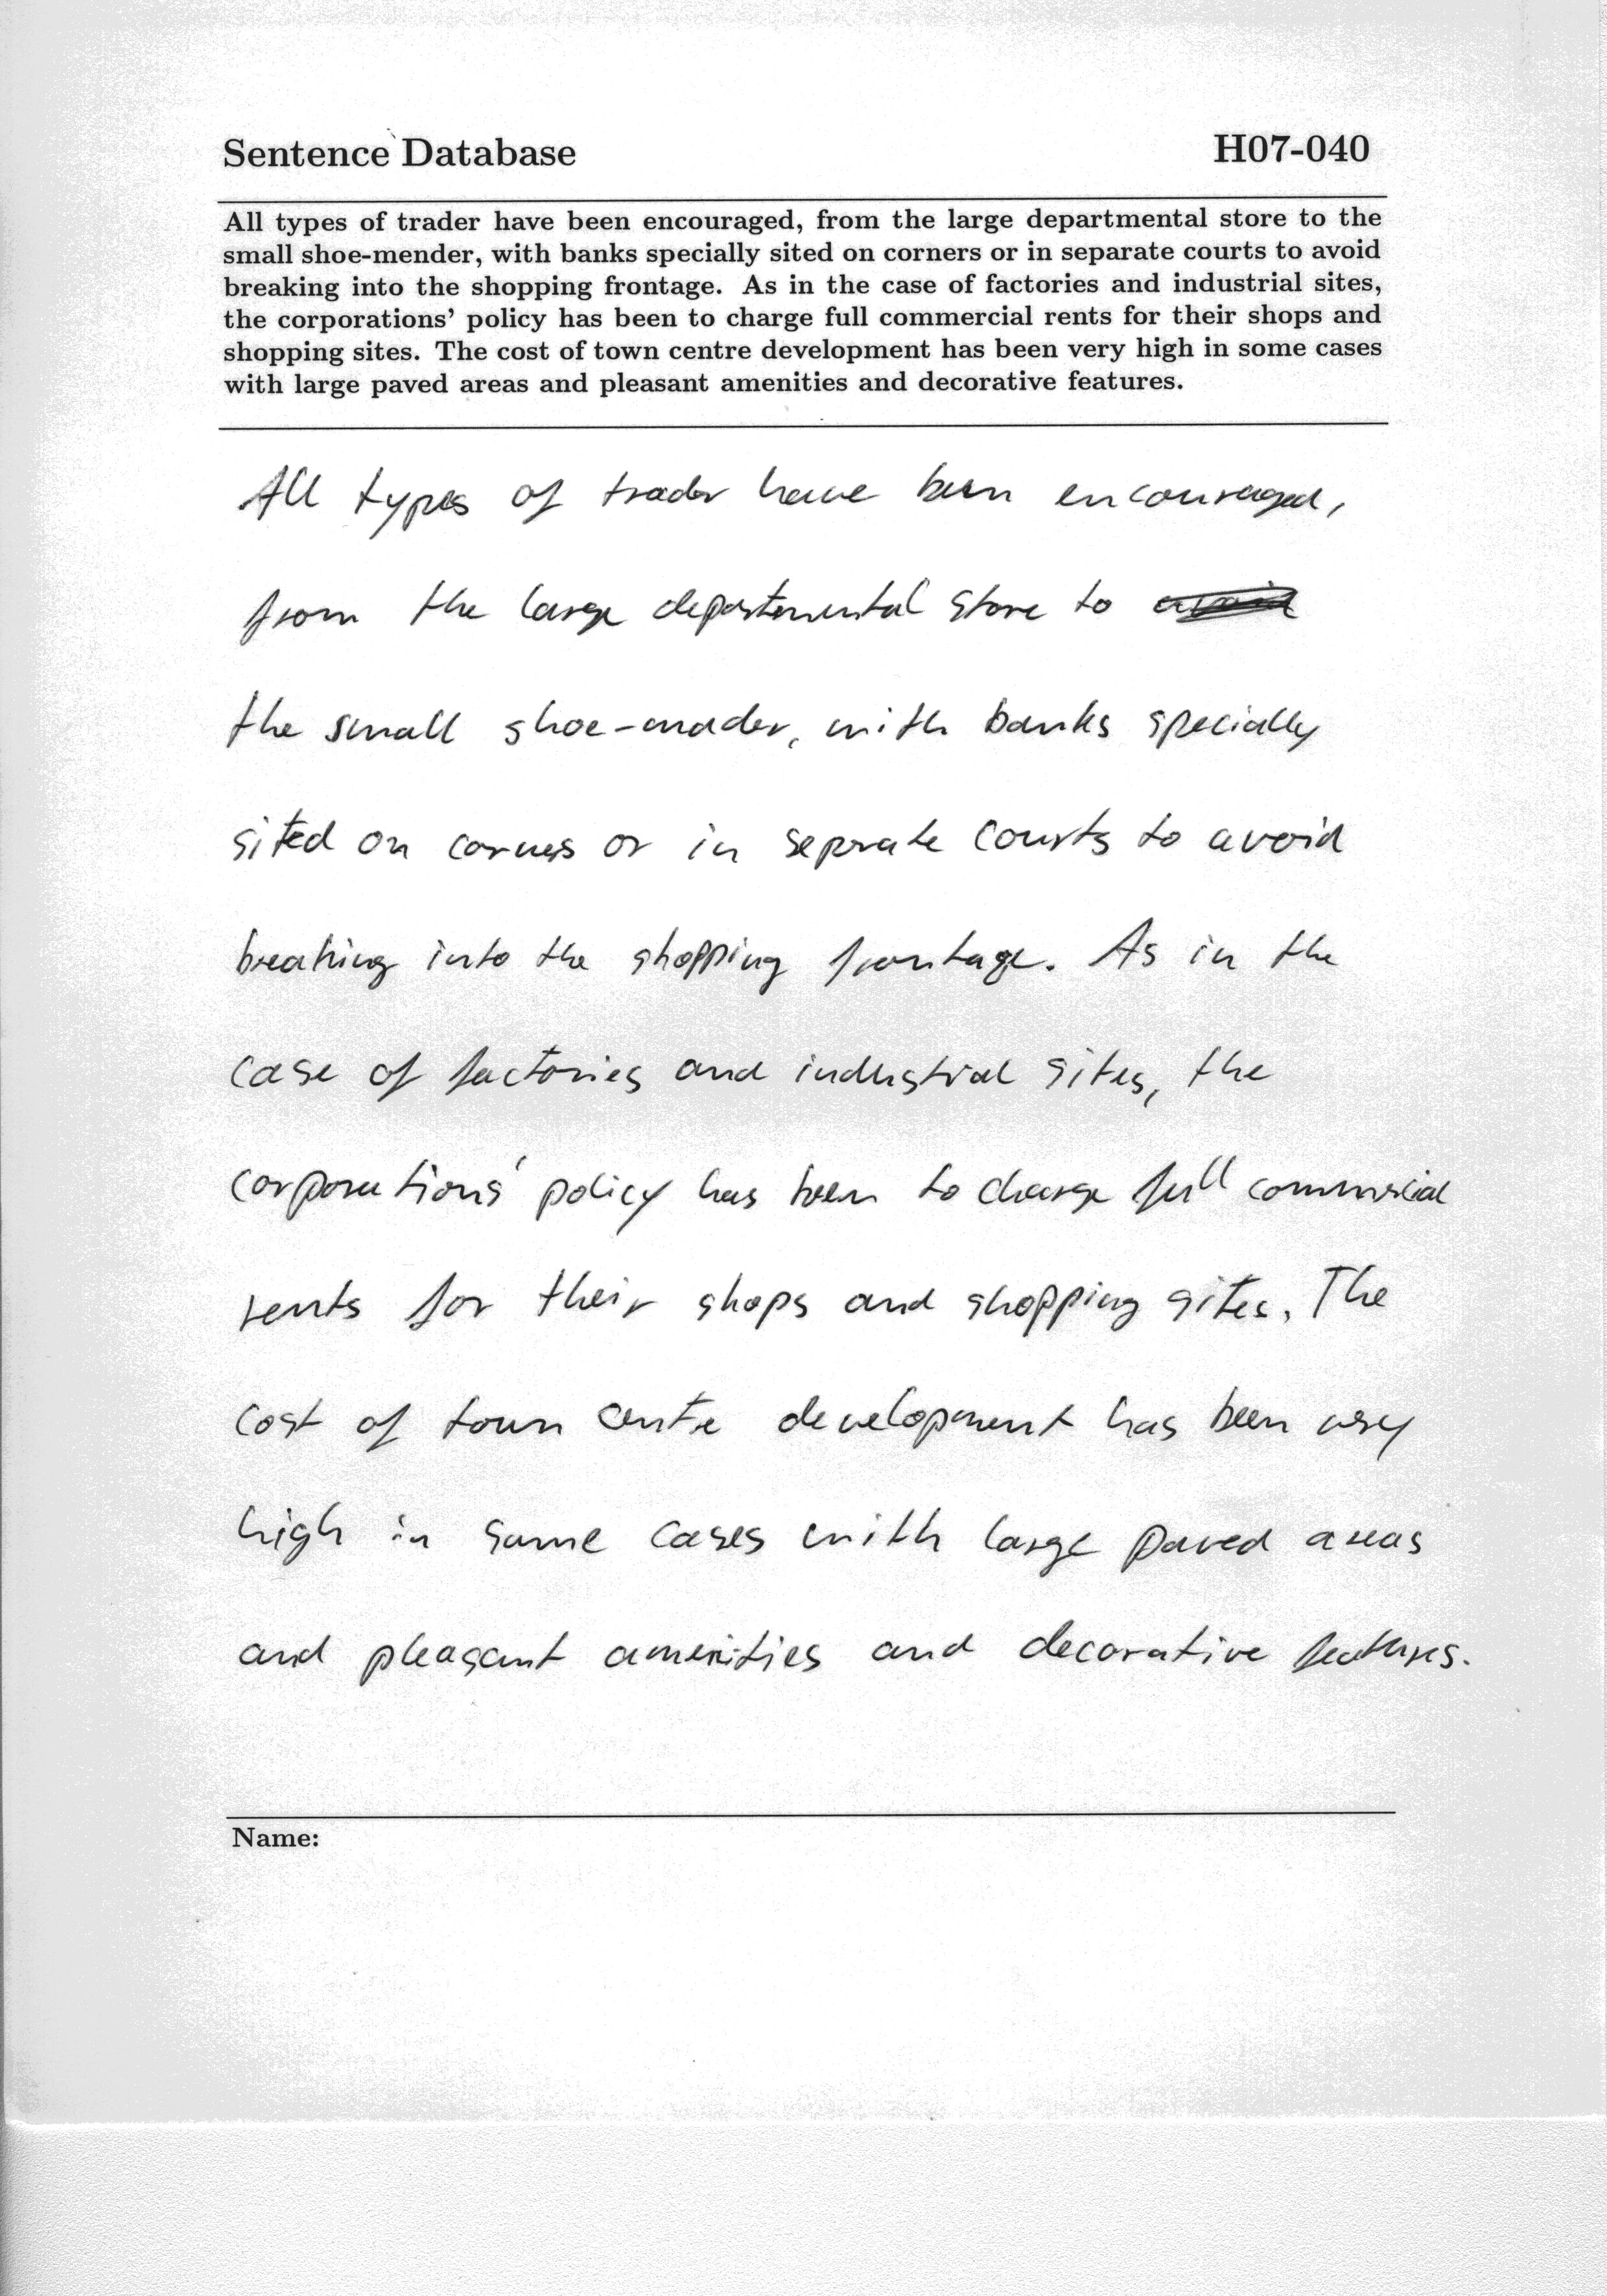 Sentence Database
H07-040
All types of trader have been encouraged, from the large departmental store to the
small shoe-mender, with banks specially sited on corners or in separate courts to avoid
breaking into the shopping frontage. As in the case of factories and industrial sites,
the corporations' policy has been to charge full commercial rents for their shops and
shopping sites. The cost of town centre development has been very high in some cases
with large paved areas and pleasant amenities and decorative features.
All types of trader have been encouraged,
from the large departemental store to
the small shoe-mader, with banks specially
sited on corners or in seprate courts to avoid
breaking into the shopping frontage. As in the
case of factories and industrial sites, the
corporations' policy has been to charge full commercial
rents for their shops and shopping sites. The
cost of town centre development has been very
high in some cases with large paved areas
and pleasant amenities and decorative features.
Name: